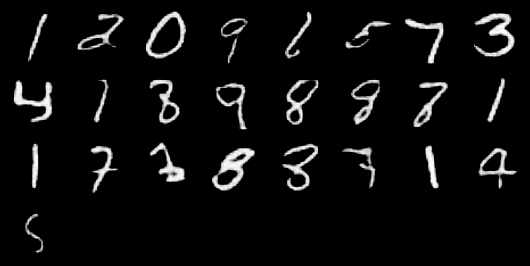 1 2 0 9 6 5 7 3
4 1 3 9 8 8 8 1
1 7 2 8 8 7 1 4
5